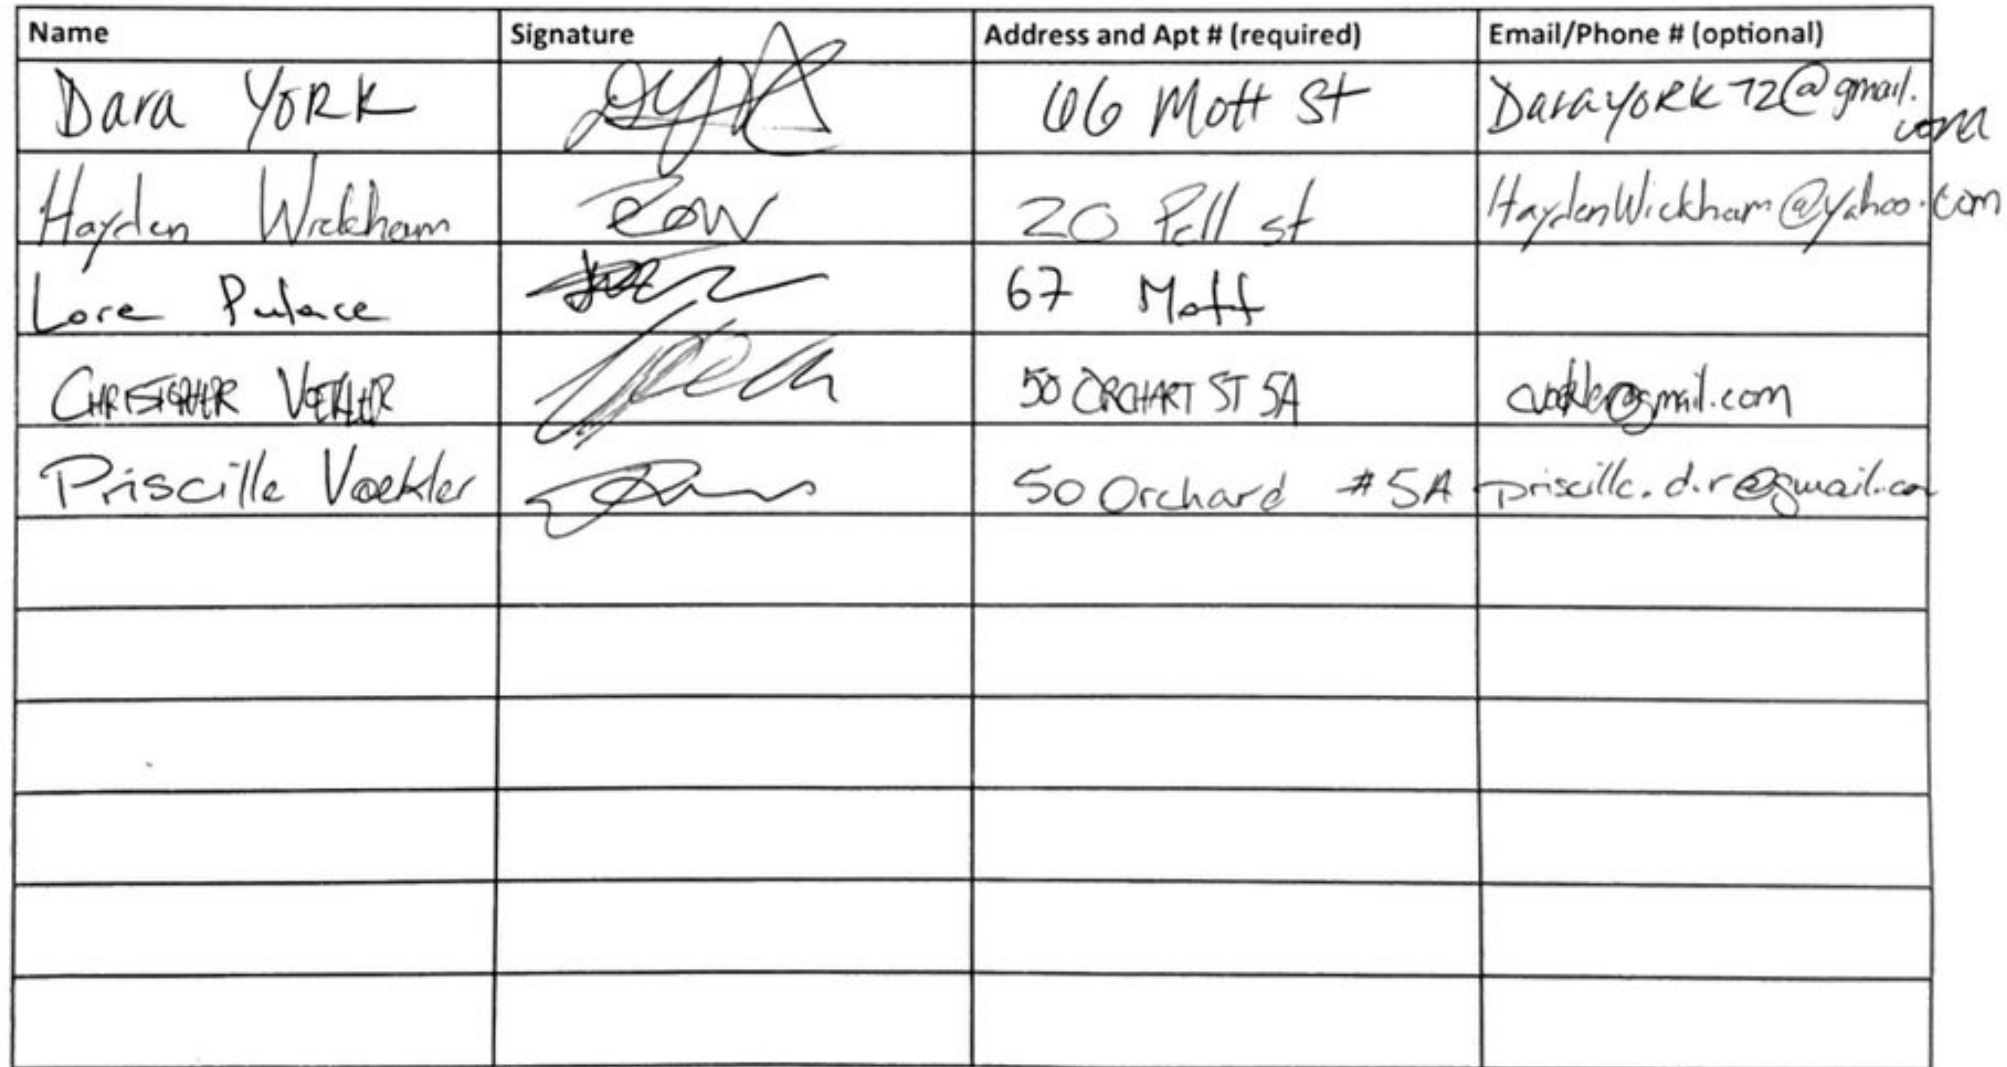 Name Signature Address and Apt # (required) Email/Phone # (optional)
Dara YORK 66 Mott St DaraYORK72@gmail.
com
Hayden Wickham 20 Pell st HaydenWickham@yahoo.com
Lore 67 Mott
CHRISTOPHER VOEKLER 50 ORCHART ST 5A @gmail.com
Priscille Voekler 50 Orchard #5A priscille.d.r@gmail.com